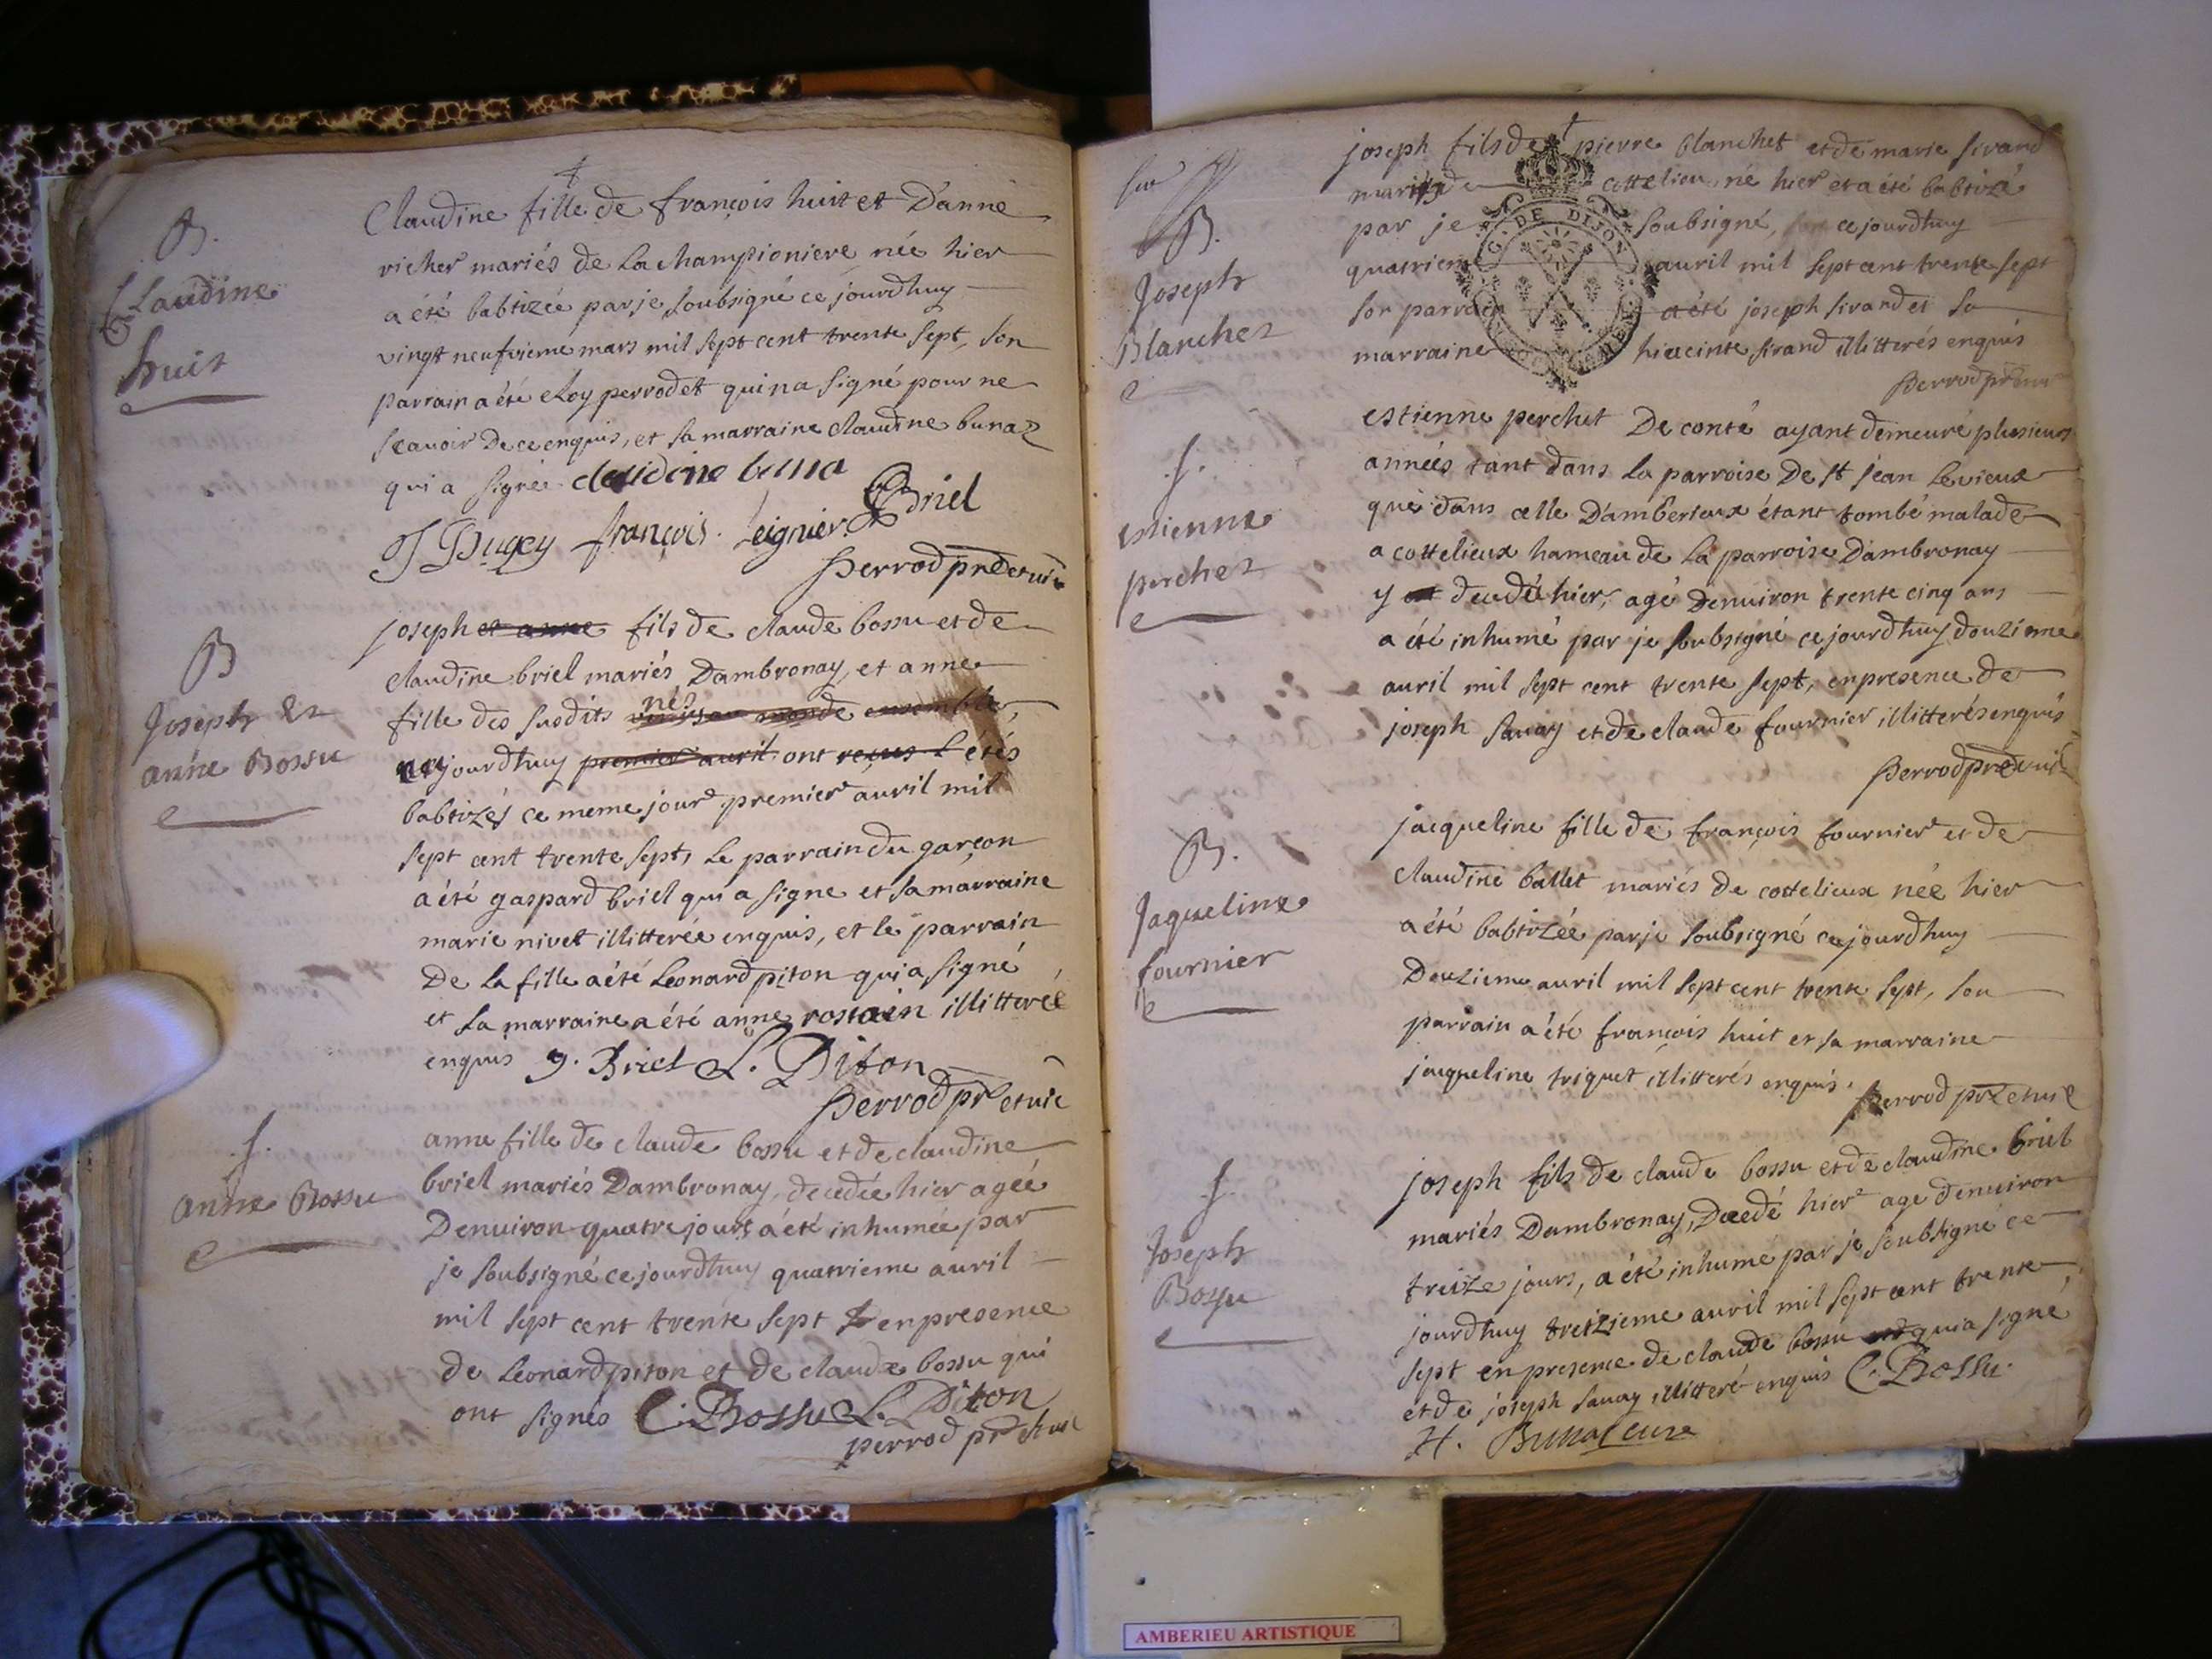 B.
Claudine
huit
Claudine fille de françois huit et D'anne
richer mariés de La championiere née hier
a été babtizée par je soubsigné ce jourdhuy
vingt neufvieme mars mil sept cent trente sept, son
parrain a été eloy perrodet qui na signé pour ne
scavoir De ce enquis, et sa marraine claudine bunaz
qui a signée claudine buna
J Dugey françois Leignier Briel
perrod pr et vic
B
Joseph et
anne Bossu
joseph et anne fils de claude bossu et de
claudine briel mariés Dambronay, et anne
fille des susdits nés venus au monde ensemble,
ce jourdhuy premier avril ont reçus L étés
babtizés ce meme jour premier avril mil
sept cent trente sept, le parrain du garçon
a été gaspard briel qui a signe et sa marraine
marie nivet illitterée enquis, et le parrain
De la fille a été Leonard piton qui a signé
et sa marraine a été anne rostain illitterée
enquis g. Briel L. Piton
perrod pr et vic
S.
anne Bossu
anne fille de claude bossu et de claudine
briel mariés Dambronay, decedée hier agée
Denviron quatre jours a été inhumée par
je soubsigné ce jourdhuy quatrieme avril
mil sept cent trente sept en presence
de Leonard piton et de claude bossu qui
ont signés C. Bossu L. Piton
perrod pr et vic
B.
Joseph
Blanchet
joseph fils de pierre blanchet et de marie sirand
mariés de cottelieu, né hier et a été babtizé
par je soubsigné, ce jourdhuy
quatrieme avril mil sept cent trente sept
son parrain a été joseph sirand et sa
marraine hiacinte sirand illitterés enquis
G. DE DIJON
perrod pr et vic
S.
estienne
perchet
estienne perchet De conté ayant demeuré plusieurs
années tant dans la parroise De st jean Levieux
que dans celle D'amberieux étant tombé malade
a cottelieux hameau de la parroise Dambronay
y est decedé hier, agé Denviron trente cinq ans
a été inhumé par je soubsigné ce jourdhuy douzieme
avril mil sept cent trente sept, en presence de
joseph savay et de claude fournier illitterés enquis
perrod pr et vic
B.
Jaqueline
fournier
jacqueline fille de françois fournier et de
claudine ballet mariés de cottelieux née hier
a été babtizée par je soubsigné ce jourdhuy
Douzieme avril mil sept cent trente sept, son
parrain a été françois huit et sa marraine
jacqueline triquet illitterés enquis.
perrod pr et vic
S.
Joseph
Bossu
joseph fils de claude bossu et de claudine briel
mariés Dambronay, Decedé hier age denviron
treize jours, a été inhumé par je soubsigné ce
jourdhuy treizieme avril mil sept cent trente
sept en presence de claude bossu qui a signé
et de joseph savay illitteré enquis C. Bossu.
H. Bunaz cure
AMBERIEU ARTISTIQUE